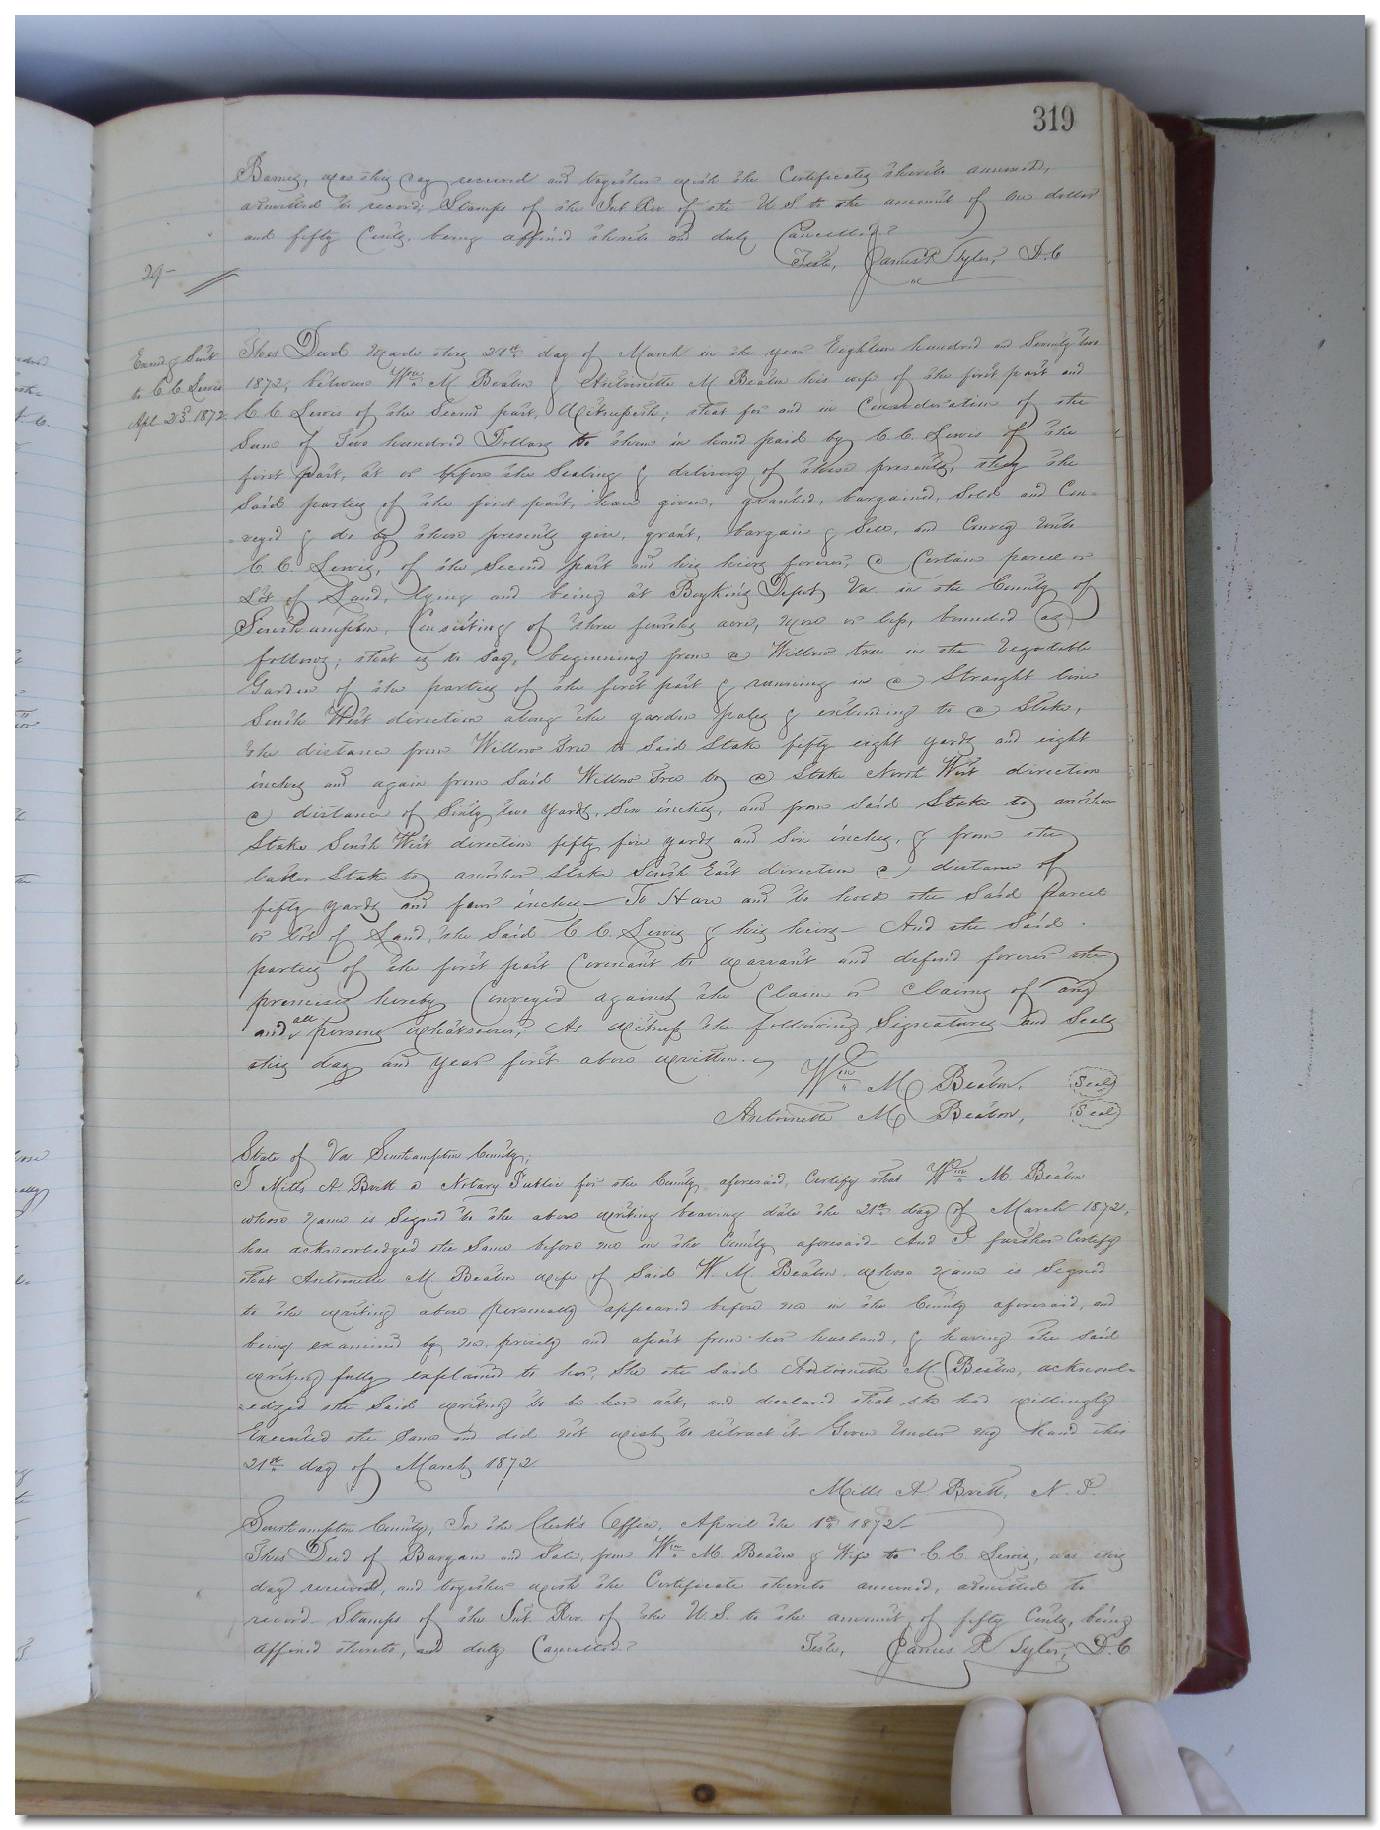 319
Barnes, was this day received and together with the Certificates thereto annexed,
admitted to record; Stamps of the Int Rev. of the U.S to the amount of One dollar
and fifty Cents, being affixed thereto and duly Cancelled.
Teste, James R Tyler, D.C
29
Exmd & Sent
to C C Lewis
Apl. 23d 1872.
This Deed made this 21st day of March in the year Eighteen hundred and Seventy two
1872, between Wm. M Beaton & Antoinette M Beaton his wife of the first part and
C C Lewis of the Second part, Witnesseth; that for and in Consideration of the
Sum of Two hundred Dollars to them in hand paid by C. C. Lewis of the
first part, at or before the Sealing & delivery of these presents, they the
Said parties of the first part, have given, granted, bargained, Sold and Con-
-veyed & do by these presents give, grant, bargain & Sell, and Convey unto
C C. Lewis, of the Second part and his heirs forever, a Certain parcel or
Lot of Land, lying and being at Boykins Depot, Va. in the County of
Southampton, Consisting of three fourths acre, more or less, bounded as
follows; that is to Say, beginning from a Willow tree in the Vegetable
Garden of the parties of the first part & running in a Straight line
South West direction along the garden pales & extending to a Stake,
the distance from Willow Tree to Said Stake fifty eight yards and eight
inches and again from Said Willow Tree to a Stake North West direction
a distance of Sixty two Yards, Six inches, and from Said Stake to another
Stake South West direction fifty five yards and Six inches, & from the
latter Stake to another Stake South East direction a distance of
fifty yards and four inches— To Have and to hold the Said parcel
or Lot of Land, the Said C C. Lewis & his heirs— And the Said
parties of the first part Covenant to warrant and defend forever the
premises hereby Conveyed against the Claim or Claims of any
and all persons whatsoever; As witness the following Signatures and Seals
this day and year first above written.
Wm. M Beaton, (Seal)
Antoinette M Beaton, (Seal)
State of Va Southampton County;
I Mills A Britt a Notary Public for the County aforesaid, Certify that Wm. M Beaton
whose name is Signed to the above writing bearing date the 21st day of March 1872,
has acknowledged the Same before me in the County aforesaid— And I further Certify
that Antoinette M Beaton wife of Said W. M. Beaton whose name is Signed
to the writing above personally appeared before me in the County aforesaid, and
being examined by me privily and apart from her husband, & having the Said
writing fully explained to her, She the Said Antoinette M. Beaton, acknowl-
-edged the Said writing to be her act, and declared that she had willingly
Executed the Same and did not wish to retract it— Given Under my hand this
21st day of March 1872
Mills A Britt, N. P.
Southampton County, In the Clerk's Office, April the 1st 1872—
This Deed of Bargain and Sale, from Wm. M Beaton & Wife to C C. Lewis, was this
day received, and together with the Certificate thereto annexed, admitted to
record— Stamps of the Int Rev. of the U.S. to the amount of fifty Cents, being
affixed thereto, and duly Cancelled.
Teste, James R Tyler, D.C